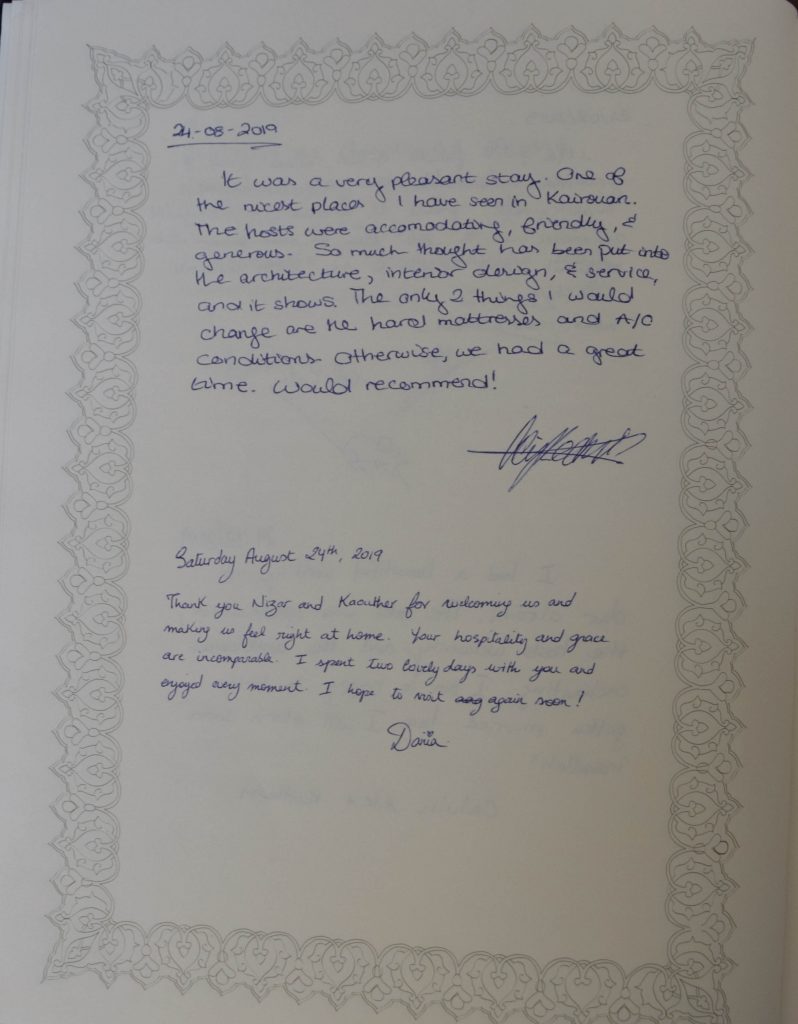 24-08-2019
It was a very pleasant stay. One of
the nicest places I have seen in Kairouan.
The hosts were accomodating, friendly, &
generous. So much thought has been put into
the architecture, interior design, & service,
and it shows. The only 2 things I would
change are the hard mattresses and A/C
conditions. Otherwise, we had a great
time. Would recommend!
Saturday August 24th, 2019
Thank you Nizar and Kaouther for welcoming us and
making us feel right at home. Your hospitality and grace
are incomparable. I spent two lovely days with you and
enjoyed every moment. I hope to visit again soon!
Dania